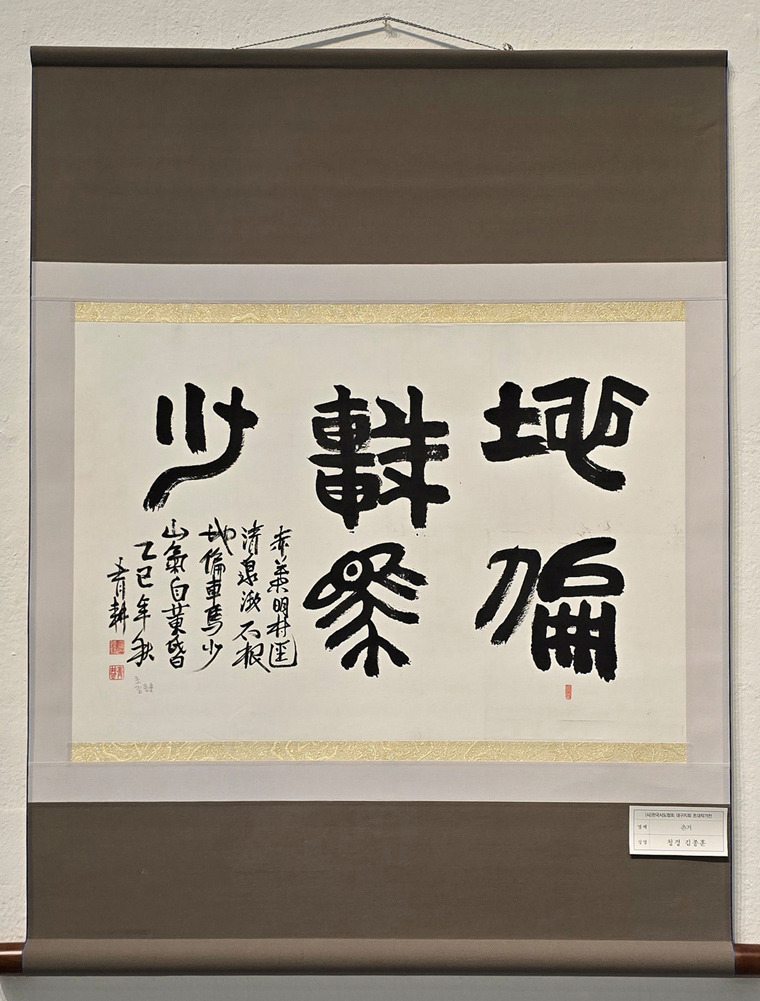 地偏
車馬
少
赤葉明村逕
清泉漱石根
地偏車馬少
山氣自黃昏
乙巳年秋
青耕
(사)한국서도협회 대구지회 초대작가전
명제 은거
성명 청경 김종훈